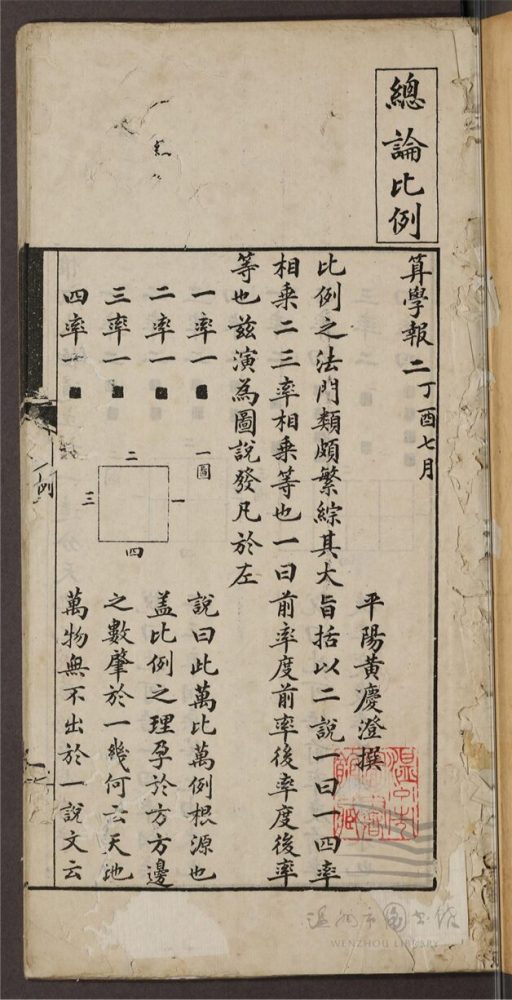 總論比例
算學報二 丁酉七月
平陽黃慶澄撰
比例之法門類頗繁綜其大旨括以二說一曰一四率
相乘二三率相乘等也一曰前率度前率後率度後率
等也茲演為圖說發凡於左
一率一
二率一
三率一
四率一
一圖
一
二
三
四
說曰此萬比萬例根源也
盖比例之理孕於方方邊
之數肇於一幾何云天地
萬物無不出於一說文云
例
溫州市圖書館
WENZHOU LIBRARY